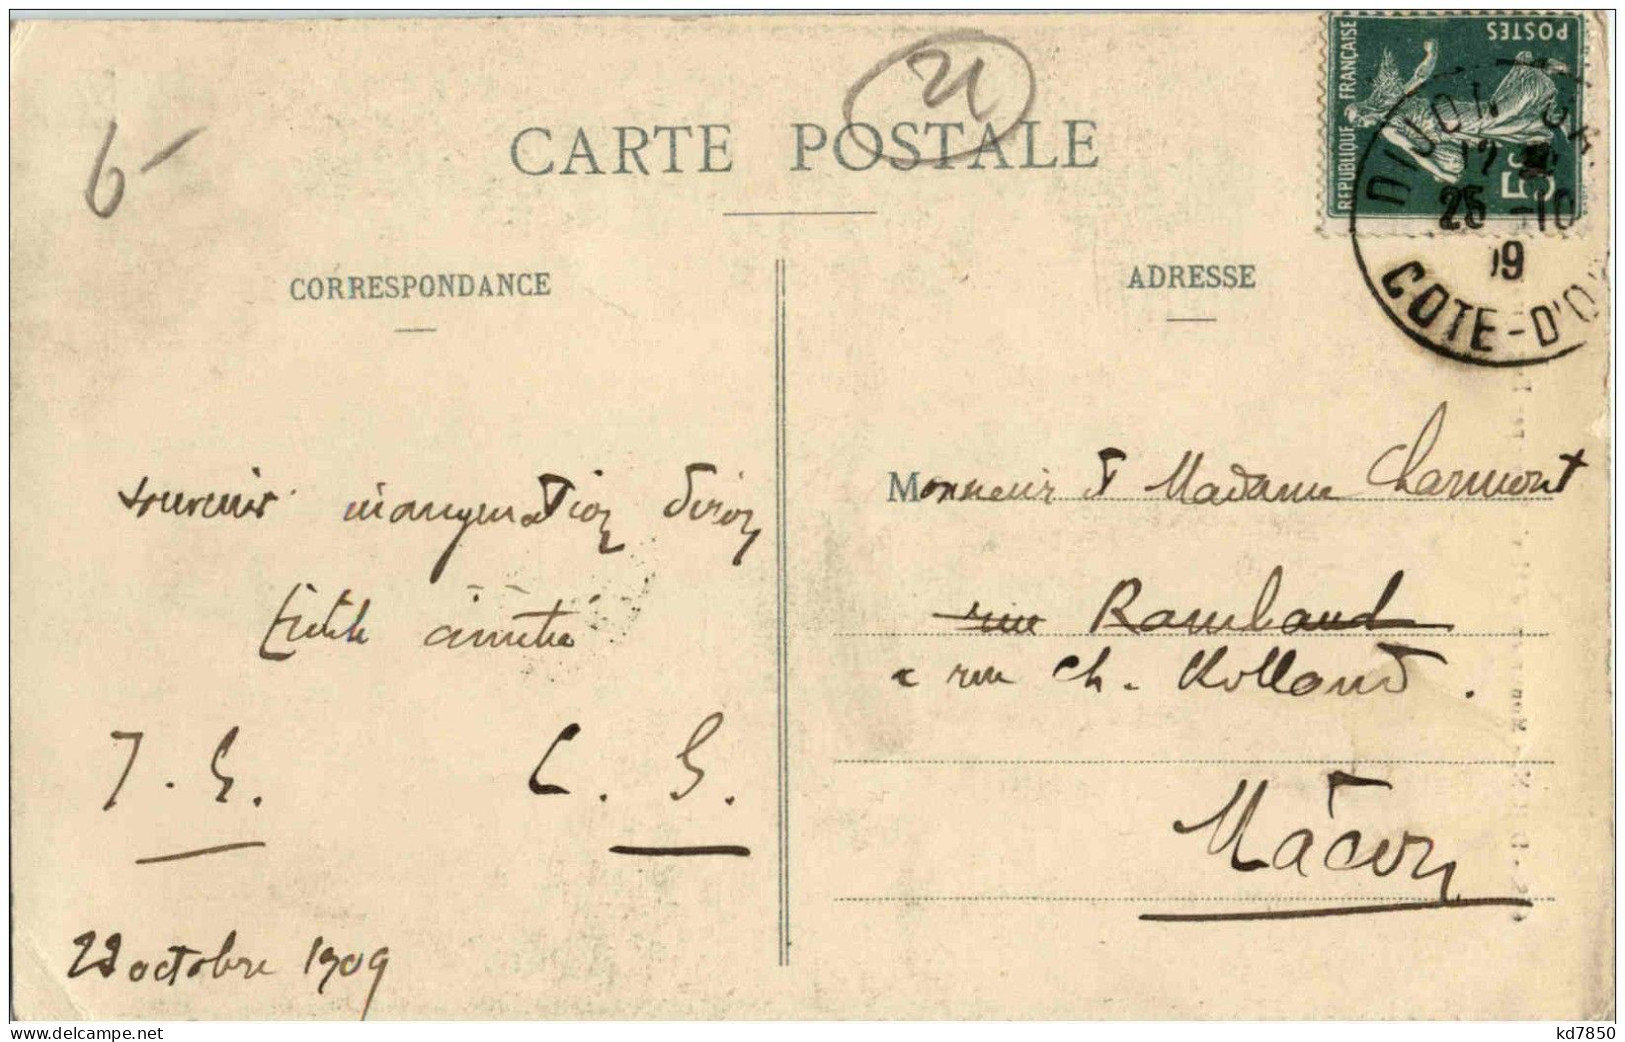 21
6-
CARTE POSTALE
REPUBLIQUE FRANÇAISE
POSTES
5c
DIJON
12
25 -10
09
COTE-D'O
CORRESPONDANCE
ADRESSE
souvenir inauguration
amitié
J. G. C. G.
octobre 1909
Monsieur et Madame Charmont
rue Rambaud
rue Ch. Rolland.
Mâcon
www.delcampe.net
kd7850